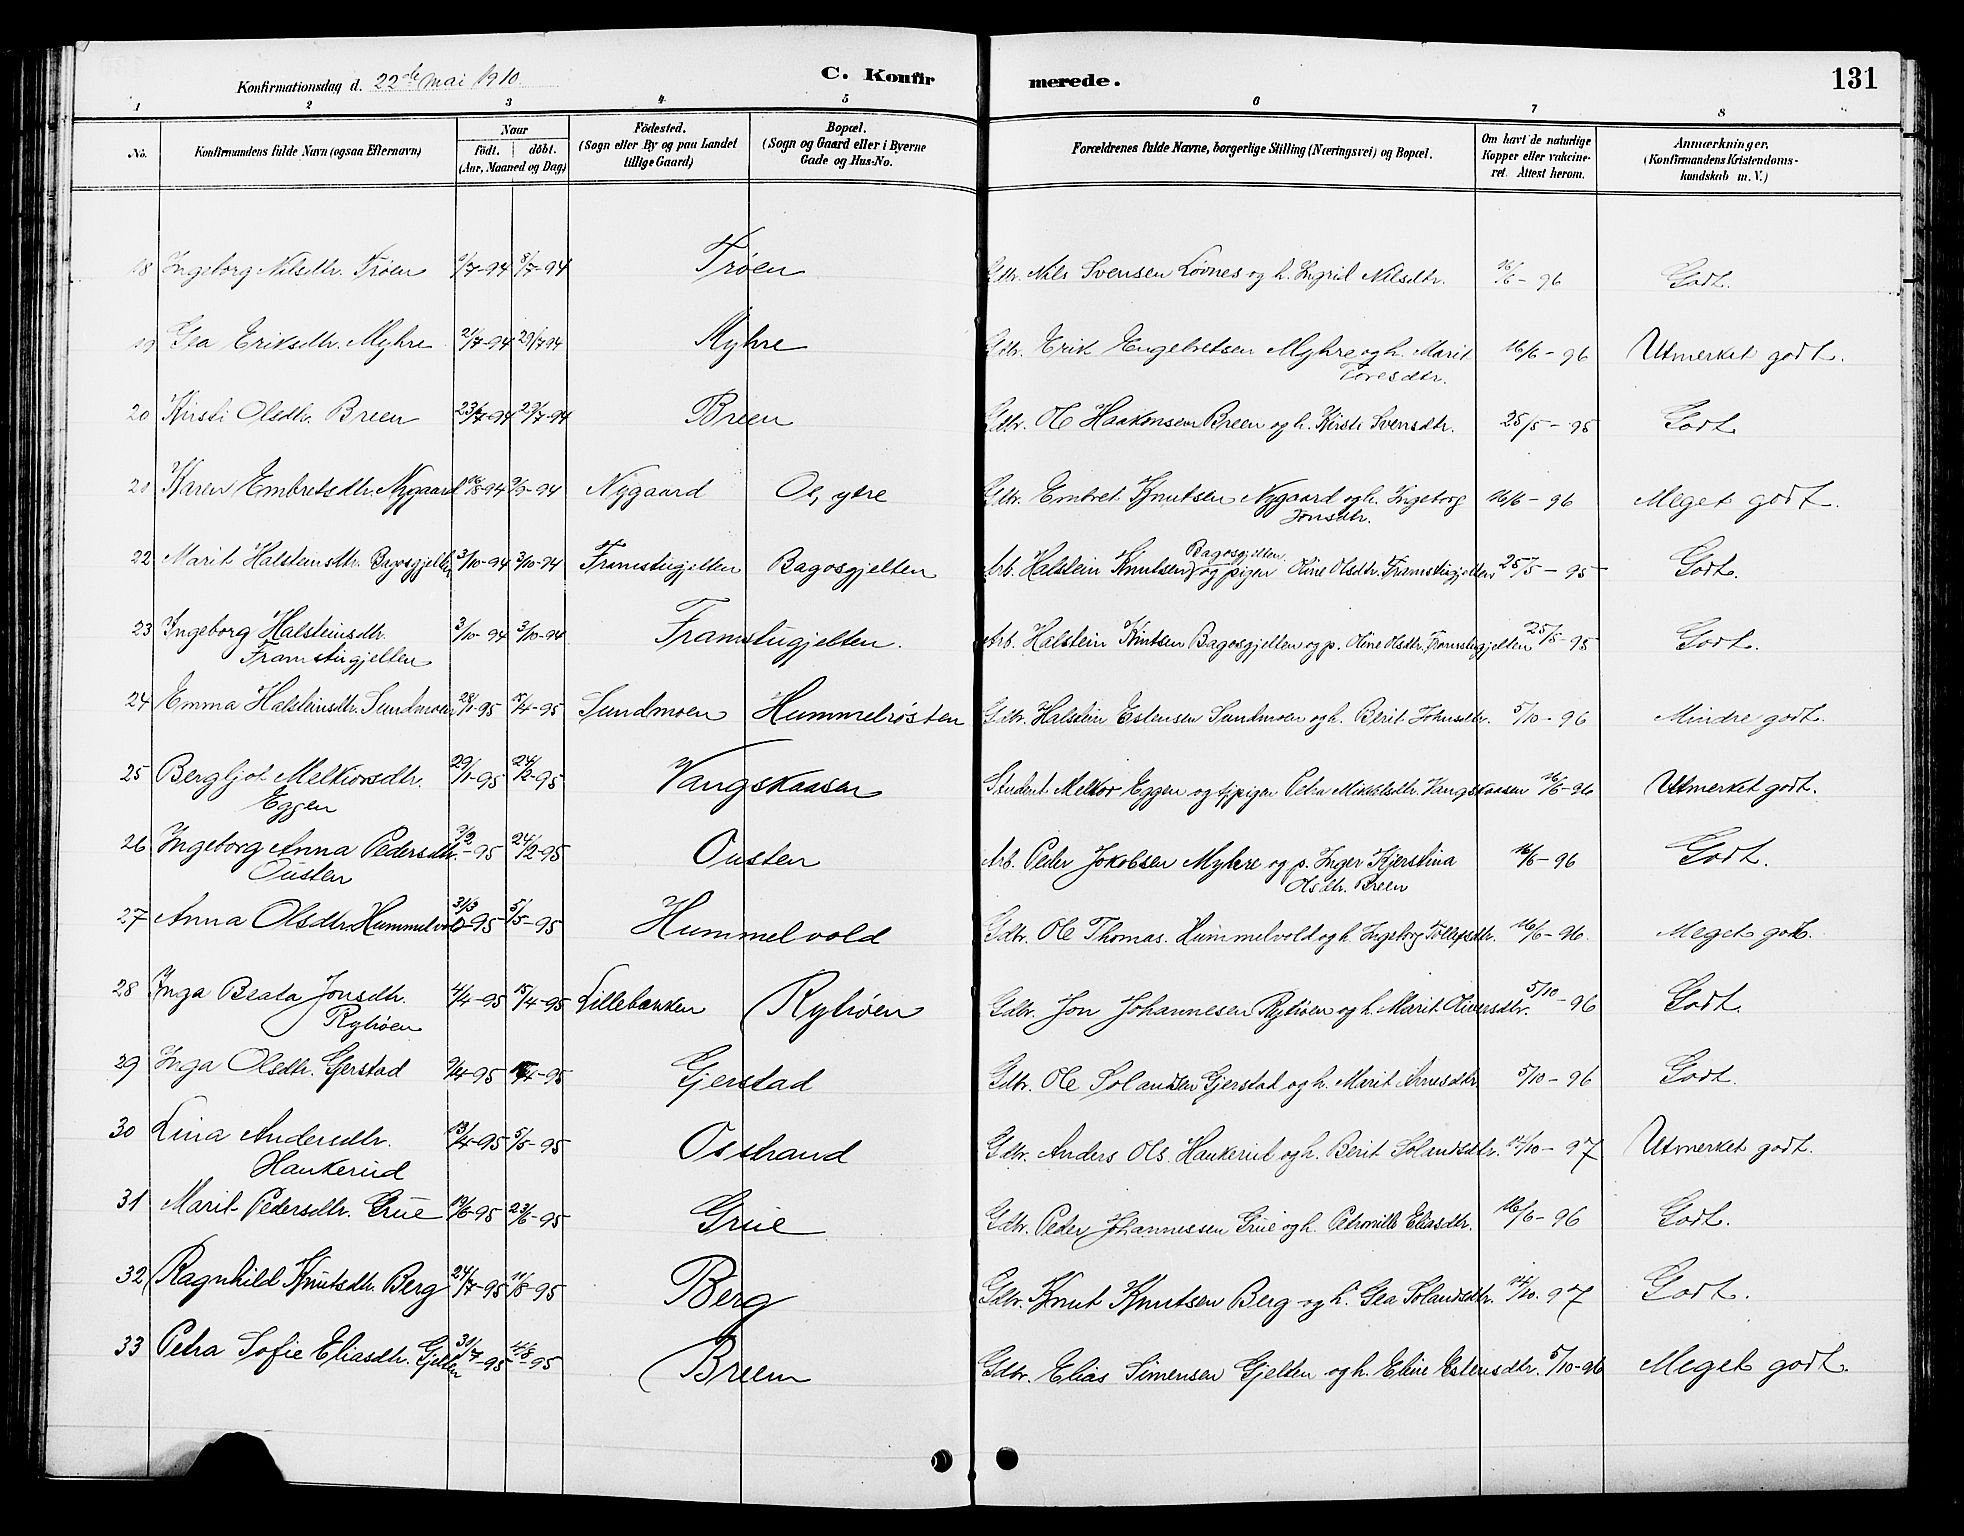 Konfirmationsdag d. 22de mai 1910. C. Konfirmerede. 131
1 2 3 4 5 6 7 8
No. Konfirmandens fulde Navn (ogsaa Efternavn) Naar født. døbt. (Aar, Maaned og Dag) Födested. (Sogn eller By og paa Landet tillige Gaard) Bopæl. (Sogn og Gaard eller i Byerne Gade og Hus-No. Forældrenes fulde Navne, borgerlige Stilling (Næringsvei) og Bopæl. Om havt de naturlige Kopper eller vakcineret. Attest herom. Anmærkninger. (Konfirmandens Kristendomskundskab m. V.)
18 Ingeborg Nilsdtr. Trøen 1/7-94 8/7-94 Trøen Gdbr. Nils Svensen Løvnes og h. Ingrid Nilsdtr. 16/6-96 Godt.
19 Gea Eriksdtr. Myhre 21/7-94 29/7-94 Myhre Gdbr. Erik Engebretsen Myhre og h. Marit Toresdtr. 16/6-96 Utmerket godt.
20 Kirsti Olsdtr. Breen 23/7-94 29/7-94 Breen Gdbr. Ole Haakonsen Breen og h. Kirsti Svensdtr. 25/5-95 Godt
21 Karen Embretsdtr. Nygaard 16/8-94 9/9-94 Nygaard Os, ytre Gdbr. Embret Knutsen Nygaard og h. Ingeborg Jonsdtr. 16/6-96 Meget godt.
22 Marit Halsteinsdtr. Bagosgjelten 3/10-94 3/10-94 Framstugjelten Bagosgjelten Arb. Halstein Knutsen Bagosgjelten og pigen Oline Olsdtr. Framstugjelten 25/5-95 Godt.
23 Ingeborg Halsteinsdtr. Framstugjelten 3/10-94 3/10-94 Framstugjelten. Arb. Halstein Knutsen Bagosgjelten og p. Oline Olsdtr. Framstugjelten 25/5-95 Godt.
24 Emma Halsteinsdtr. Sundmoen 28/1-95 15/4-95 Sundmoen Hummelrösten Gdbr. Halstein Estensen Sundmoen og h. Berit Johnsdtr. 5/10-96 Mindre godt.
25 Bergljot Melkiorsdtr. Eggen 29/1-95 24/2-95 Vangskaasen Student Melkior Eggen og tjpigen Petra Mikkelsdtr. Vangskaasen 16/6-96 Utmerket godt.
26 Ingeborg Anna Pedersdtr. Ousten 9/2-95 24/2-95 Ousten Arb. Peder Jakobsen Myhre og p. Inger Kjerstina Olsdtr. Breen 16/6-96 Godt.
27 Anna Olsdtr. Hummelvold 31/3-95 5/5-95 Hummelvold Gdbr. Ole Thomas. Hummelvold og h. Ingeborg Tollefsdtr. 16/6-96. Meget godt.
28 Inga Beata Jonsdtr. Ryhøen 4/4-95 15/4-95 Lillebakken Ryhøen Gdbr. Jon Johannesen Ryhøen og h. Marit Oliversdtr. 5/10-96 Godt.
29 Inga Olsdtr. Gjerstad 9/4-95 15/4-95 Gjerstad Gdbr. Ole Solandsen Gjerstad og h. Marit Arnesdtr. 5/10-96 Godt.
30 Lina Andersdtr. Haukerud 13/4-95 5/5-95 Osstrand Gdbr. Anders Ols. Haukerud og h. Berit Solandsdtr. 14/10-97 Utmerket godt.
31 Marit Pedersdtr. Grue 19/6-95 23/6-95 Grue Gdbr. Peder Johannessen Grue og h. Petronille Eliasdtr. 16/6-96 Godt.
32 Ragnhild Knutsdtr. Berg 24/7-95 11/8-95 Berg Gdbr. Knut Knutsen Berg og h. Gea Solandsdtr. 14/10-97 Godt.
33 Petra Sofie Eliasdtr. Gjelten 30/7-95 4/8-95 Breen Gdbr. Elias Simensen Gjelten og h. Eline Estensdtr. 5/10-96 Meget godt.